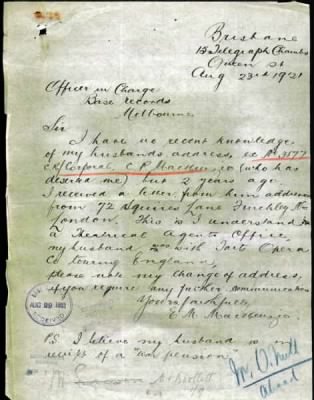 Brisbane
15 Telegraph Chambers
Queen St
Aug 23rd 1921
Officer in Charge
Base records
Melbourne
Sir
I have no recent knowledge
of my husbands address, ex
Corporal, C. P. (who has
deserted me) but 2 years ago
I received a letter from him address
from 72 Squires Lane Finchley
London. This is I understand
a Theatrical Agents Office,
my husband was with Opera
Co touring England,
please note my change of address,
if you require any further communication
Yours faithfully
E. M. Mackenzie
PS. I believe my husband is in
receipt of a "war pension"